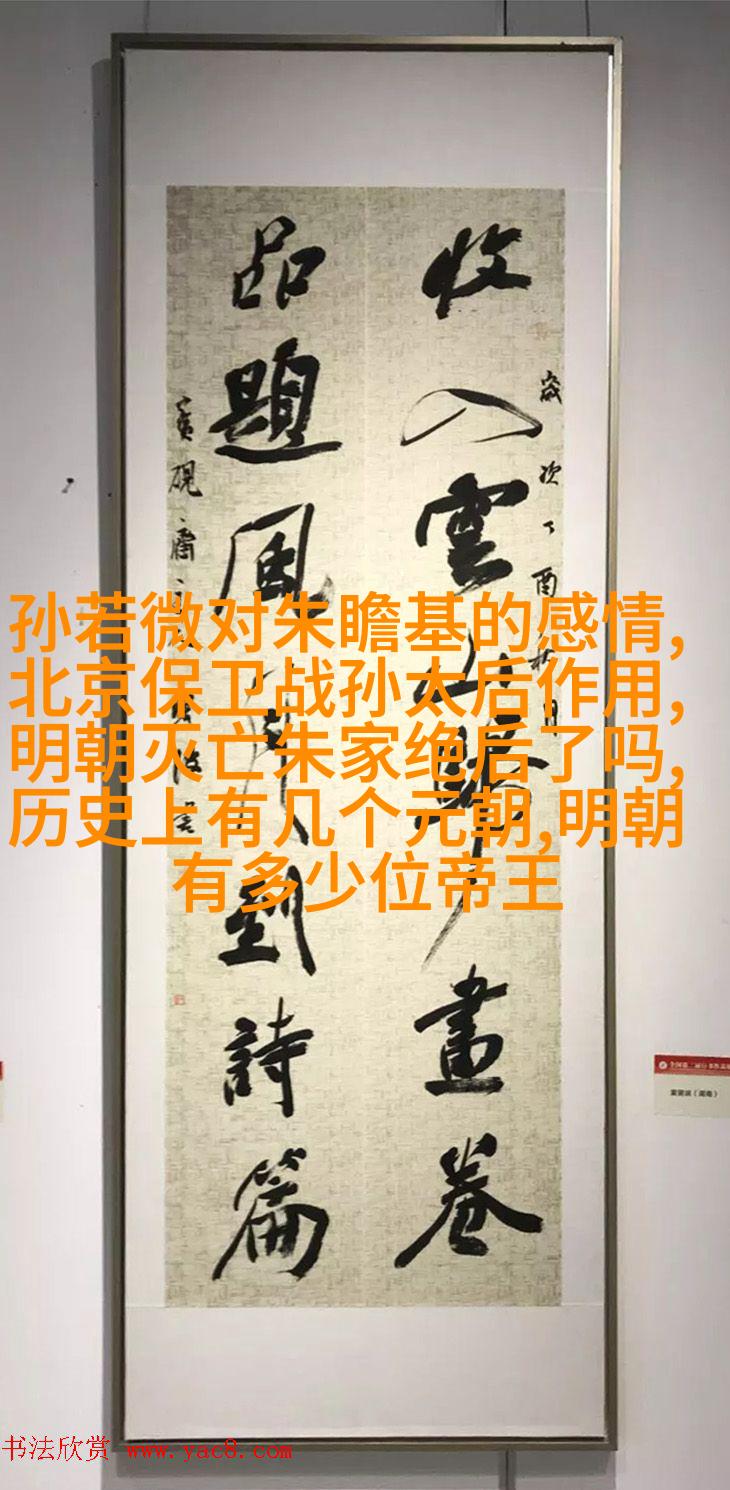 收入雲山歸畫卷
歲次丁酉秋月
品題風月到詩篇
孙若微对朱瞻基的感情,
北京保卫战孙太后作用,
明朝灭亡朱家绝后了吗,
历史上有几个元朝,明朝
有多少位帝王
书法欣赏 www.yac8.com